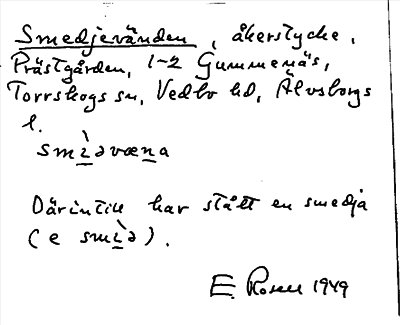 Smedjevänden, åkerstycke,
Prästgården, 1-2 Gummenäs,
Torrskogs sn, Vedbo hd, Älvsborgs
l.
smìəvæna
Därintill har stått en smedja
(e smìə).
E. Rosell 1949